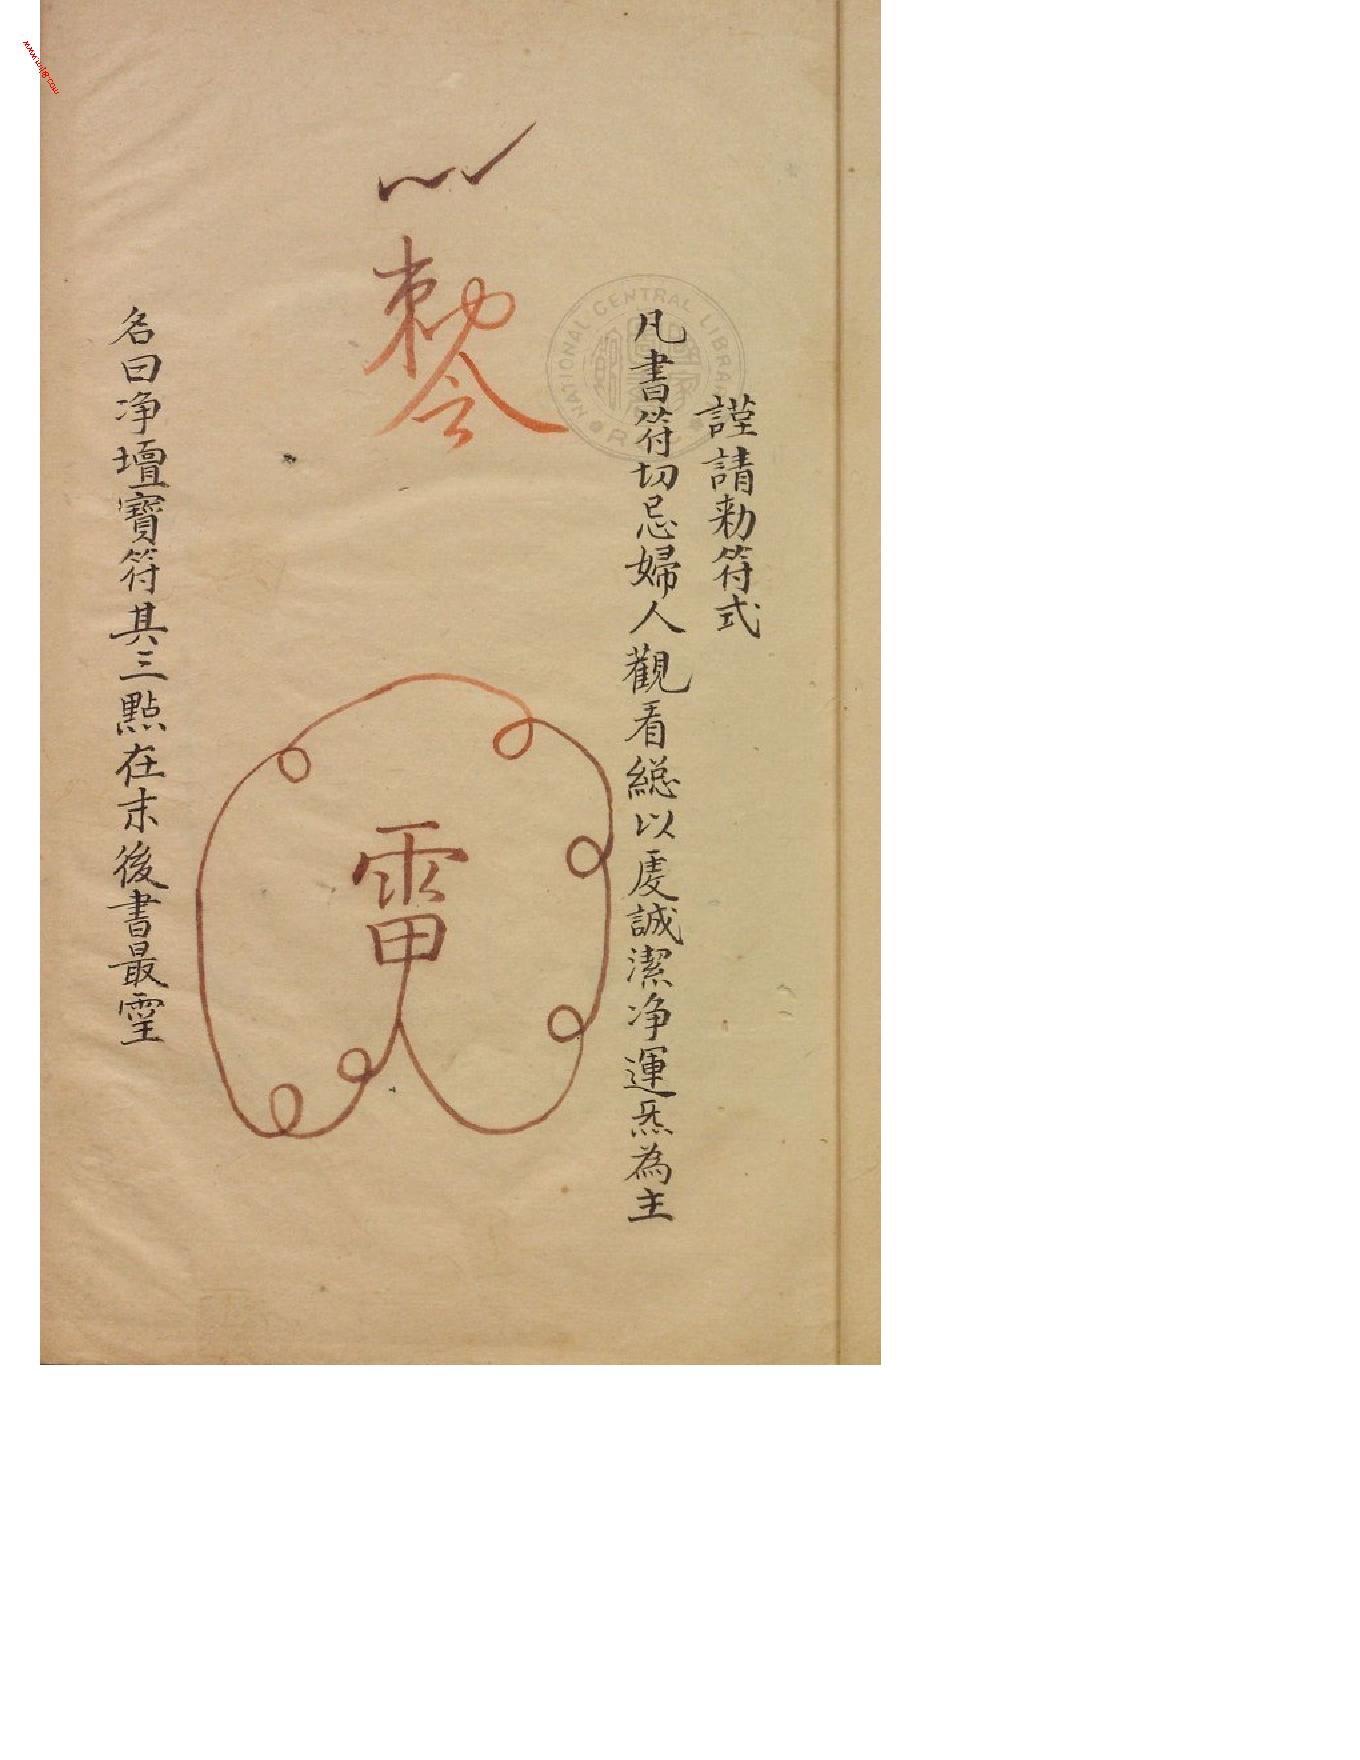 謹請勅符式
凡書符切忌婦人觀看総以虔誠潔净運炁為主
勅令
雷
名曰净壇寳符其三點在末後書最靈
NATIONAL CENTRAL LIBRARY